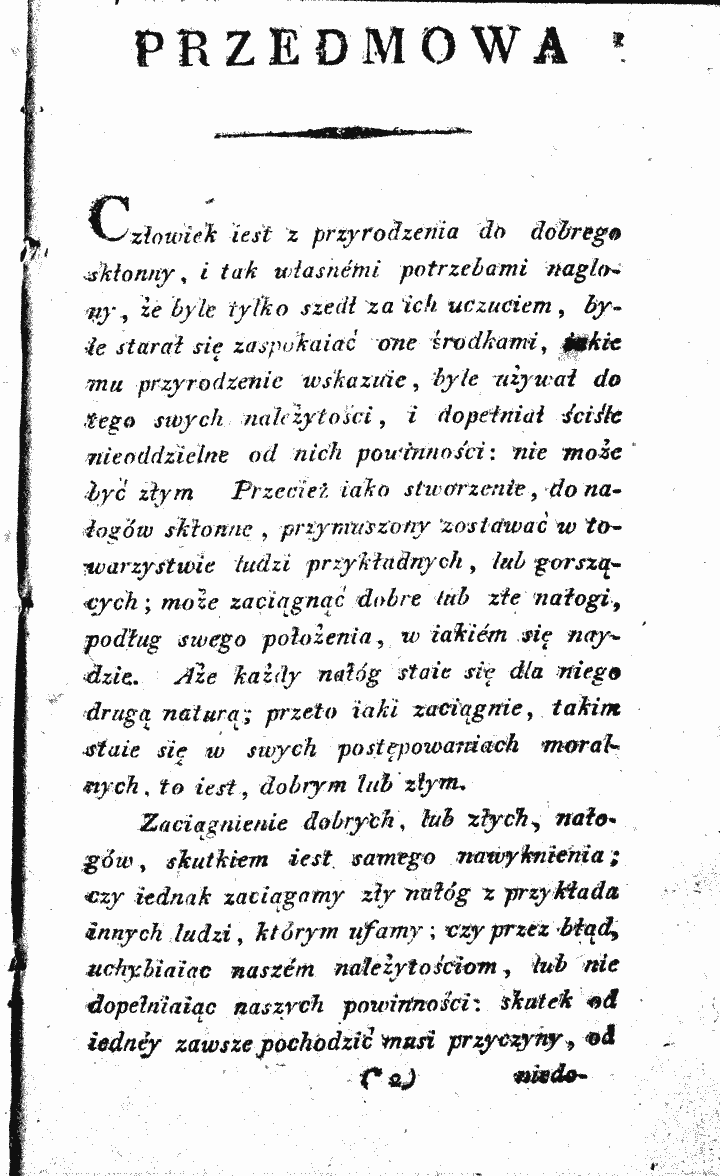 PRZEDMOWA
Człowiek iest z przyrodzenia do dobrego
skłonny, i tak własnémi potrzebami naglo-
ny, że byle tylko szedł za ich uczuciem, by-
le starał się zaspokaiać one środkami, iakie
mu przyrodzenie wskazuie, byle używał do
tego swych należytości, i dopełniał ściśle
nieoddzielne od nich powinności: nie może
być złym Przecież iako stworzenie, do na-
łogów skłonne, przymuszony zostawać w to-
warzystwie ludzi przykładnych, lub gorszą-
cych; może zaciągnąć dobre lub złe nałogi,
podług swego położenia, w iakiém się nay-
dzie. Aże każdy nałóg staie się dla niego
drugą naturą; przeto iaki zaciągnie, takim
staie się w swych postępowaniach moral-
nych, to iest, dobrym lub złym.
Zaciągnienie dobrych, lub złych, nało-
gów, skutkiem iest samego nawyknienia;
czy iednak zaciągamy zły nałóg z przykłada
innych ludzi, którym ufamy; czy przez błąd,
uchybiaiac naszém należytościom, lub nie
dopełniaiąc naszych powinności: skutek od
iednéy zawsze pochodzić musi przyczyny, od
(2) niedo-